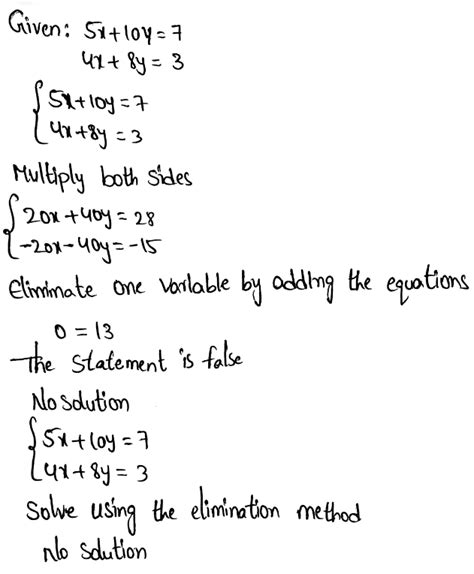 Given: 5x+10y=7
4x+8y=3
5x+10y=7
4x+8y=3
Multiply both sides
20x+40y=28
-20x-40y=-15
Eliminate one variable by adding the equations
0=13
The statement is false
No solution
5x+10y=7
4x+8y=3
Solve using the elimination method
No solution